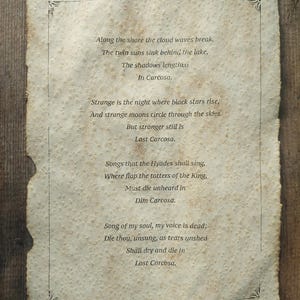 Along the shore the cloud waves break,
The twin suns sink behind the lake,
The shadows lengthen
In Carcosa.
Strange is the night where black stars rise,
And strange moons circle through the skies
But stranger still is
Lost Carcosa.
Songs that the Hyades shall sing,
Where flap the tatters of the King,
Must die unheard in
Dim Carcosa.
Song of my soul, my voice is dead;
Die thou, unsung, as tears unshed
Shall dry and die in
Lost Carcosa.